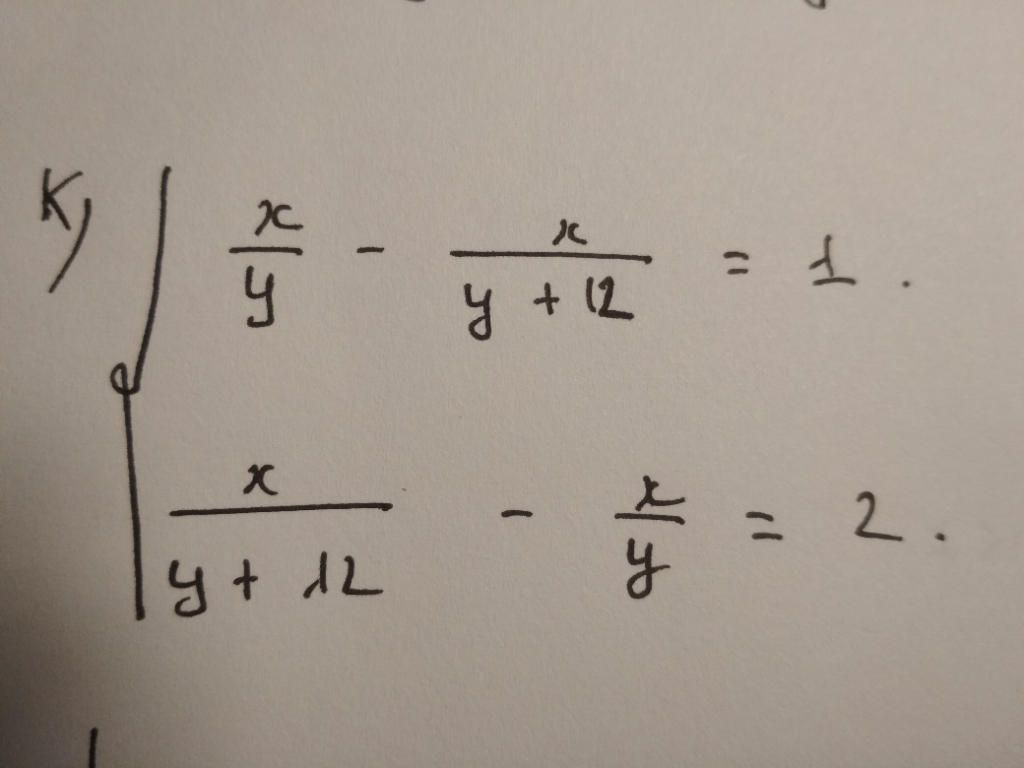 K) x/y - x/(y + 12) = 1.
x/(y + 12) - x/y = 2.